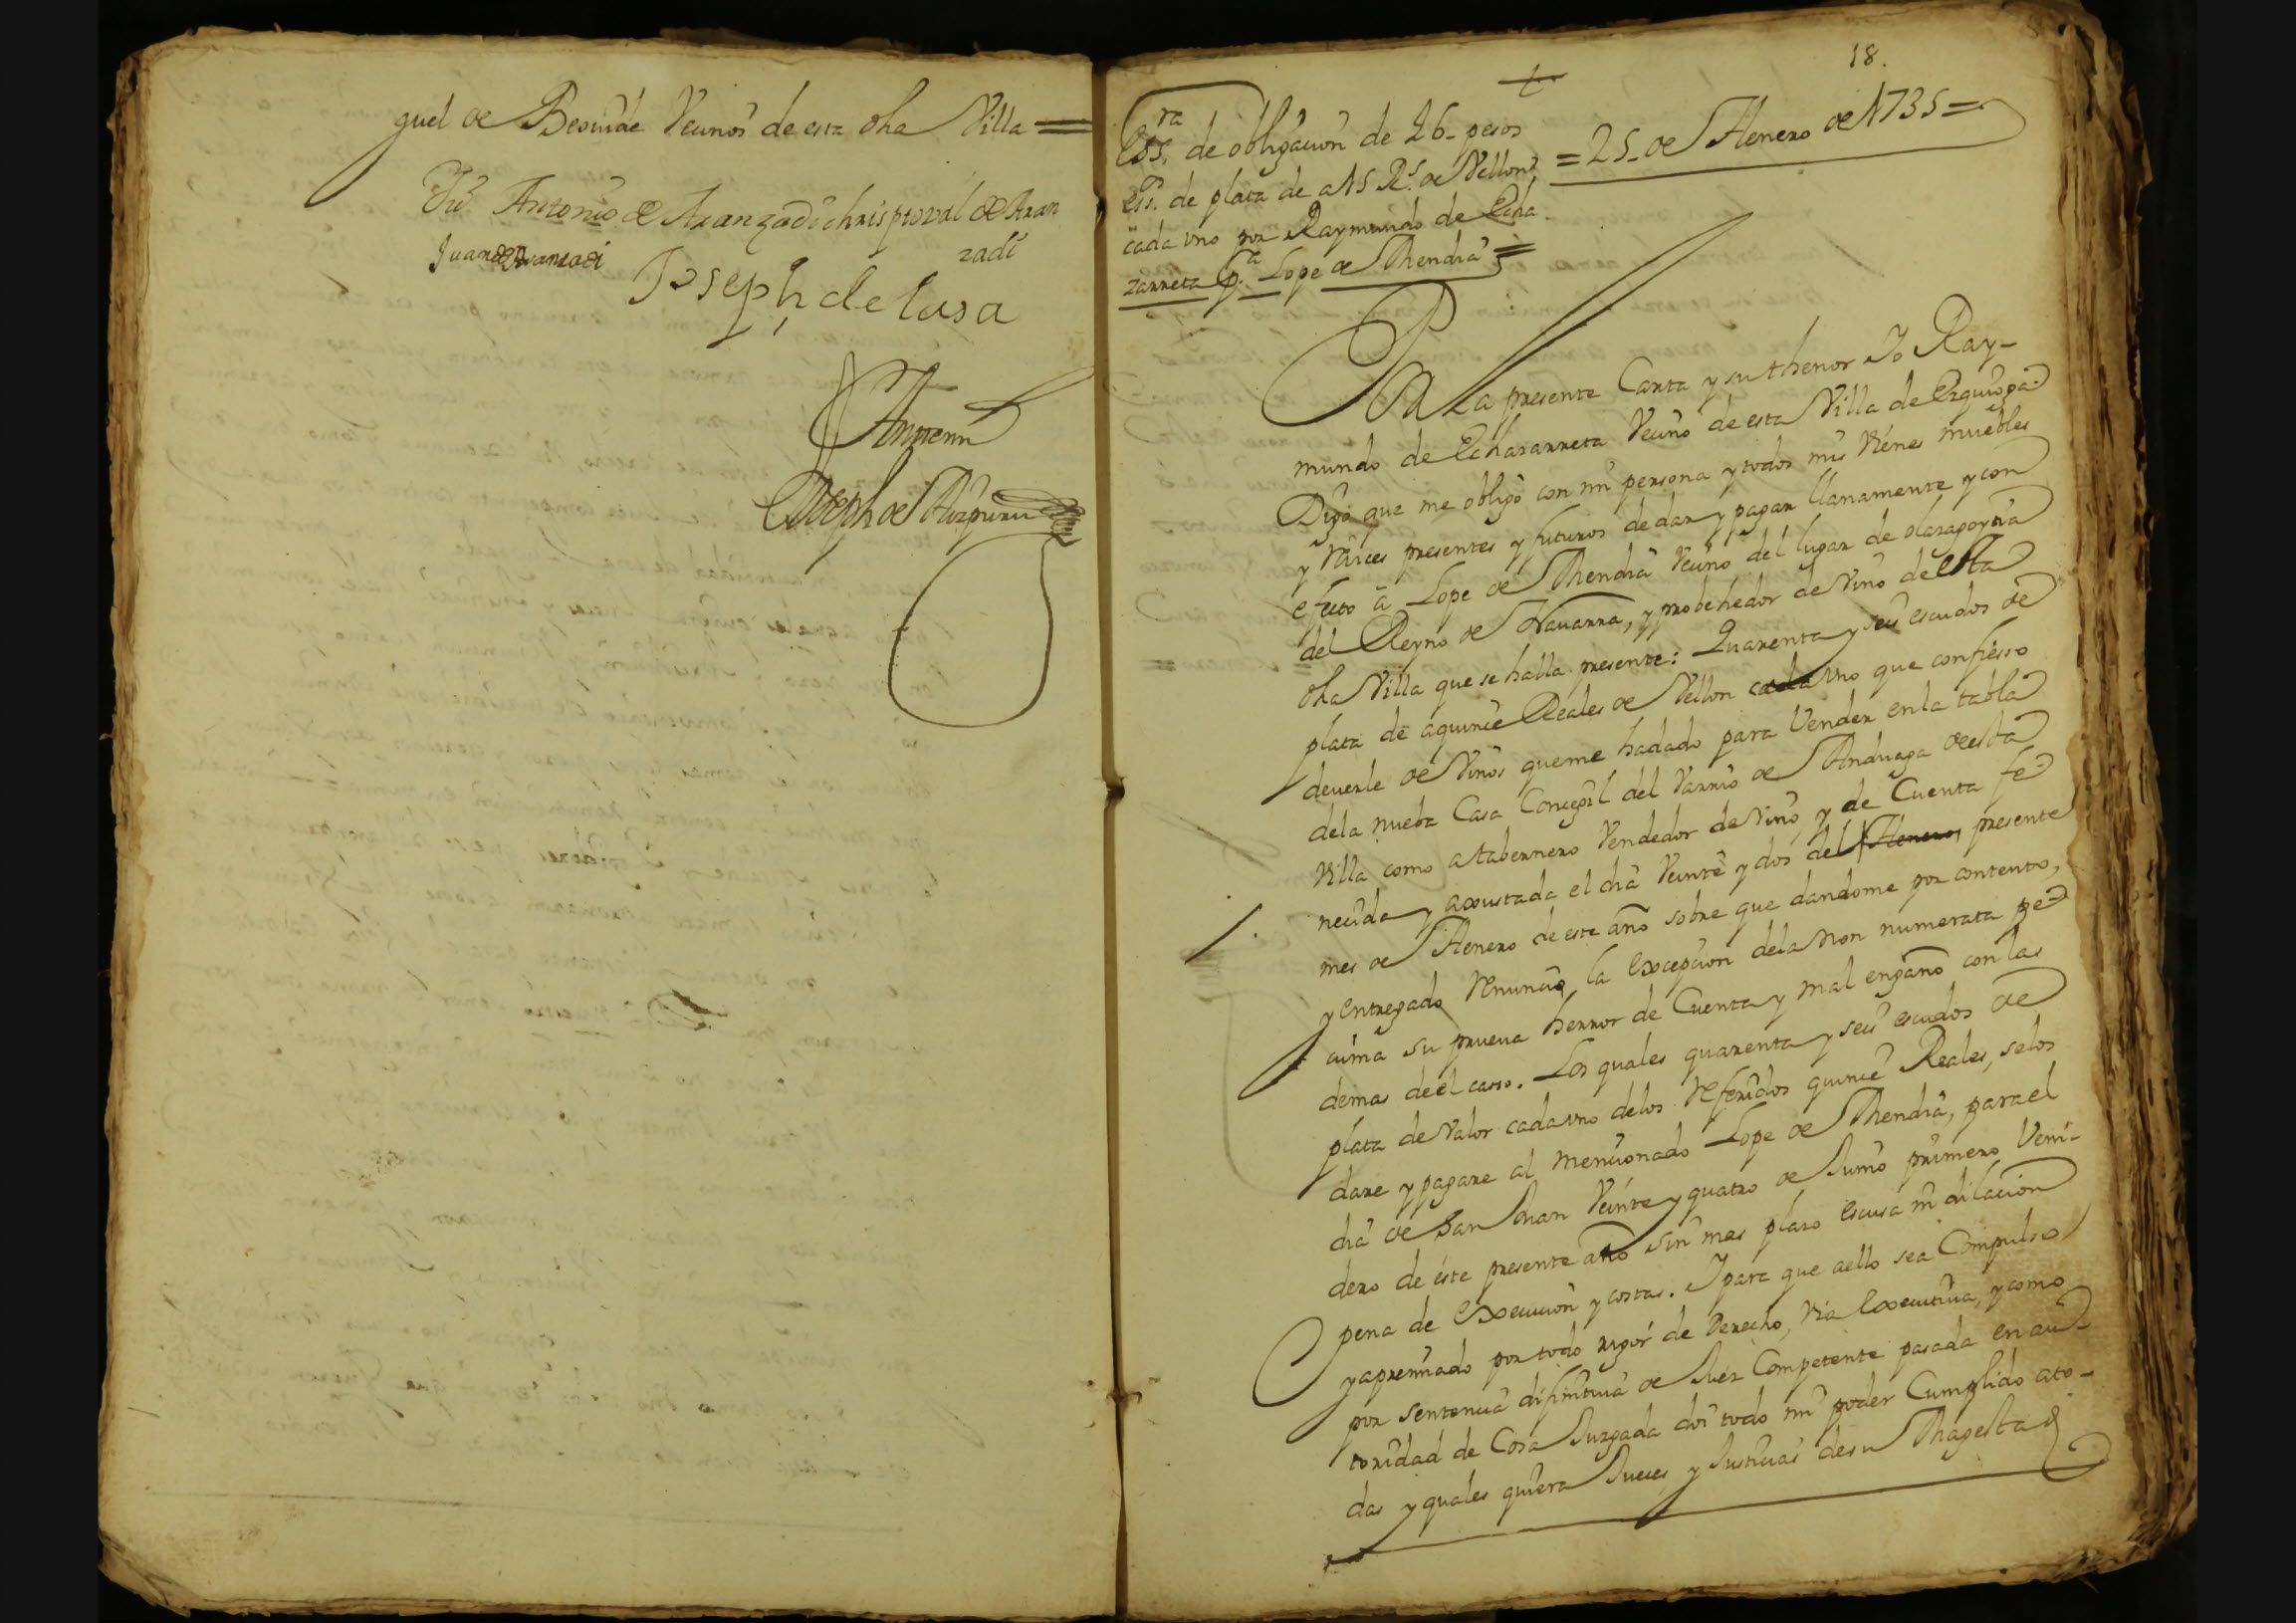 guel de Beovide Veçinos de esta dha Villa =
Antonio de Aranzadi christoval de Aran
zadi
Juan de Aranzadi
Joseph de lasa
Antemi
Joseph de Aizpuru
18.
Ess.ra de obligaçion de 46 pesos
ess. de plata de a 15 R.s de Vellon
cada vno por Raymundo de Echa
zarreta p.a Lope de Mendia =
= 25 de Henero de 1735 =
Por La presente Carta y su thenor Yo Ray-
mundo de Echazarreta Veçino de esta Villa de Ezquioga
Digo que me obligo con mi persona y todos mis Vienes muebles
y Raices presentes y futuros de dar y pagar llanamente y con
efecto â Lope de Mendia Veçino del lugar de olazagoytia
del Reyno de Navarra, y probehedor de Vino de esta
dha Villa que se halla presente: Quarenta y seis escudos de
plata de aquinçe Reales de Vellon cada vno que confiesso
deverle de Vinos queme hadado para Vender enla tabla
dela nueba Casa Conçegil del Varrio de Anduaga deesta
Villa como a tabernero Vendedor de Vino, y de Cuenta fe
neçida y axustada el dia Veinte y dos del Henero presente
mes de Henero de este año sobre que dandome por contento,
y entregado Renunçio la Excepçion dela non numerata pe
cunia su prueva herror de Cuenta y mal engaño con las
demas de el casso. Los quales quarenta y seis escudos de
plata de Valor cada vno delos Referidos quinçe Reales, selos
dare y pagare al mençionado Lope de Mendia, para el
dia de San Juan Veinte y quatro de Junio primero Veni-
dero de éste presente año sin mas plazo escusa ni dilaçion
pena de Execuçion y costas. Y para que aello sea Compulso
y apremiado por todo rigor de Derecho, Via Executiva, y como
por sentençia difinitiva de Juez Competente pasada en au-
toridad de Cosa Juzgada doi todo mi poder Cumplido ato-
das y quales quiera Jueçes y Justiçias de su Magestad